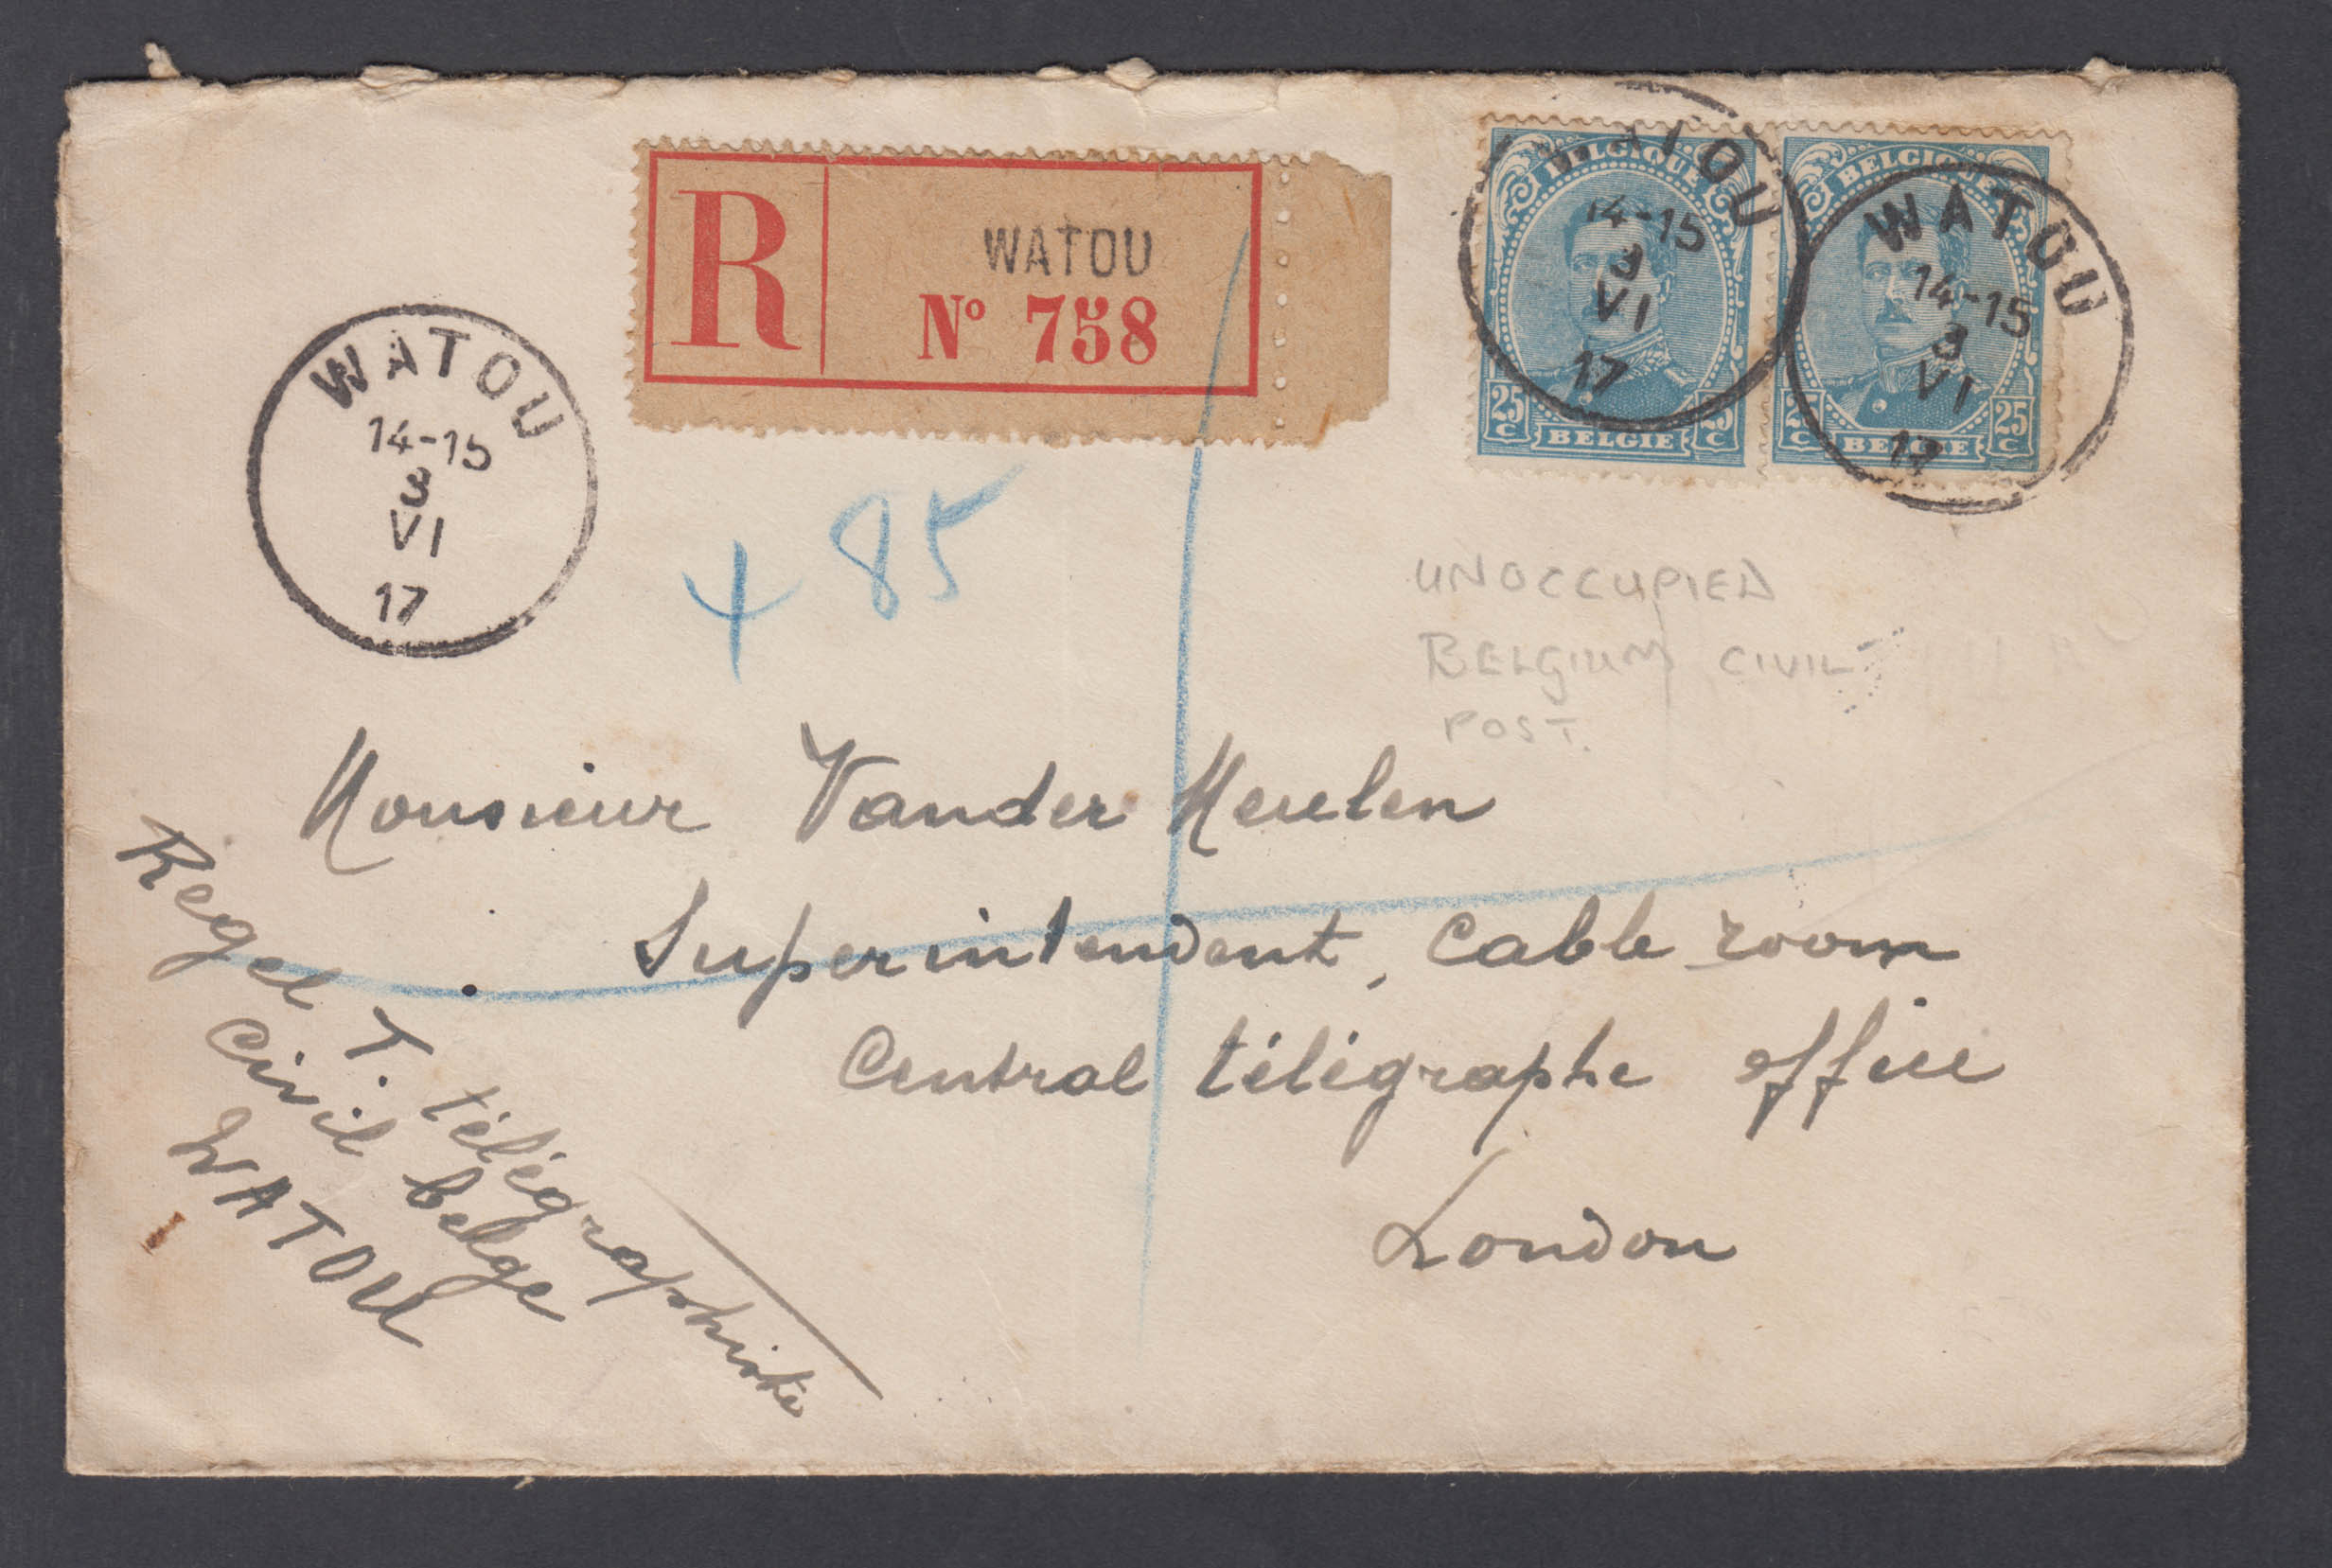 R
WATOU
Nº 758
WATOU
14-15
3
VI
17
BELGIQUE
25 C BELGIE 25 C
WATOU
14-15
3
VI
17
BELGIQUE
25 C BELGIE 25 C
WATOU
14-15
3
VI
17
485
UNOCCUPIED
BELGIUM CIVIL
POST.
Monsieur Vander Meulen
Superintendent, Cable room
Central télégraphe office
London
Regel T. télégraphiste
Civil belge
WATOU